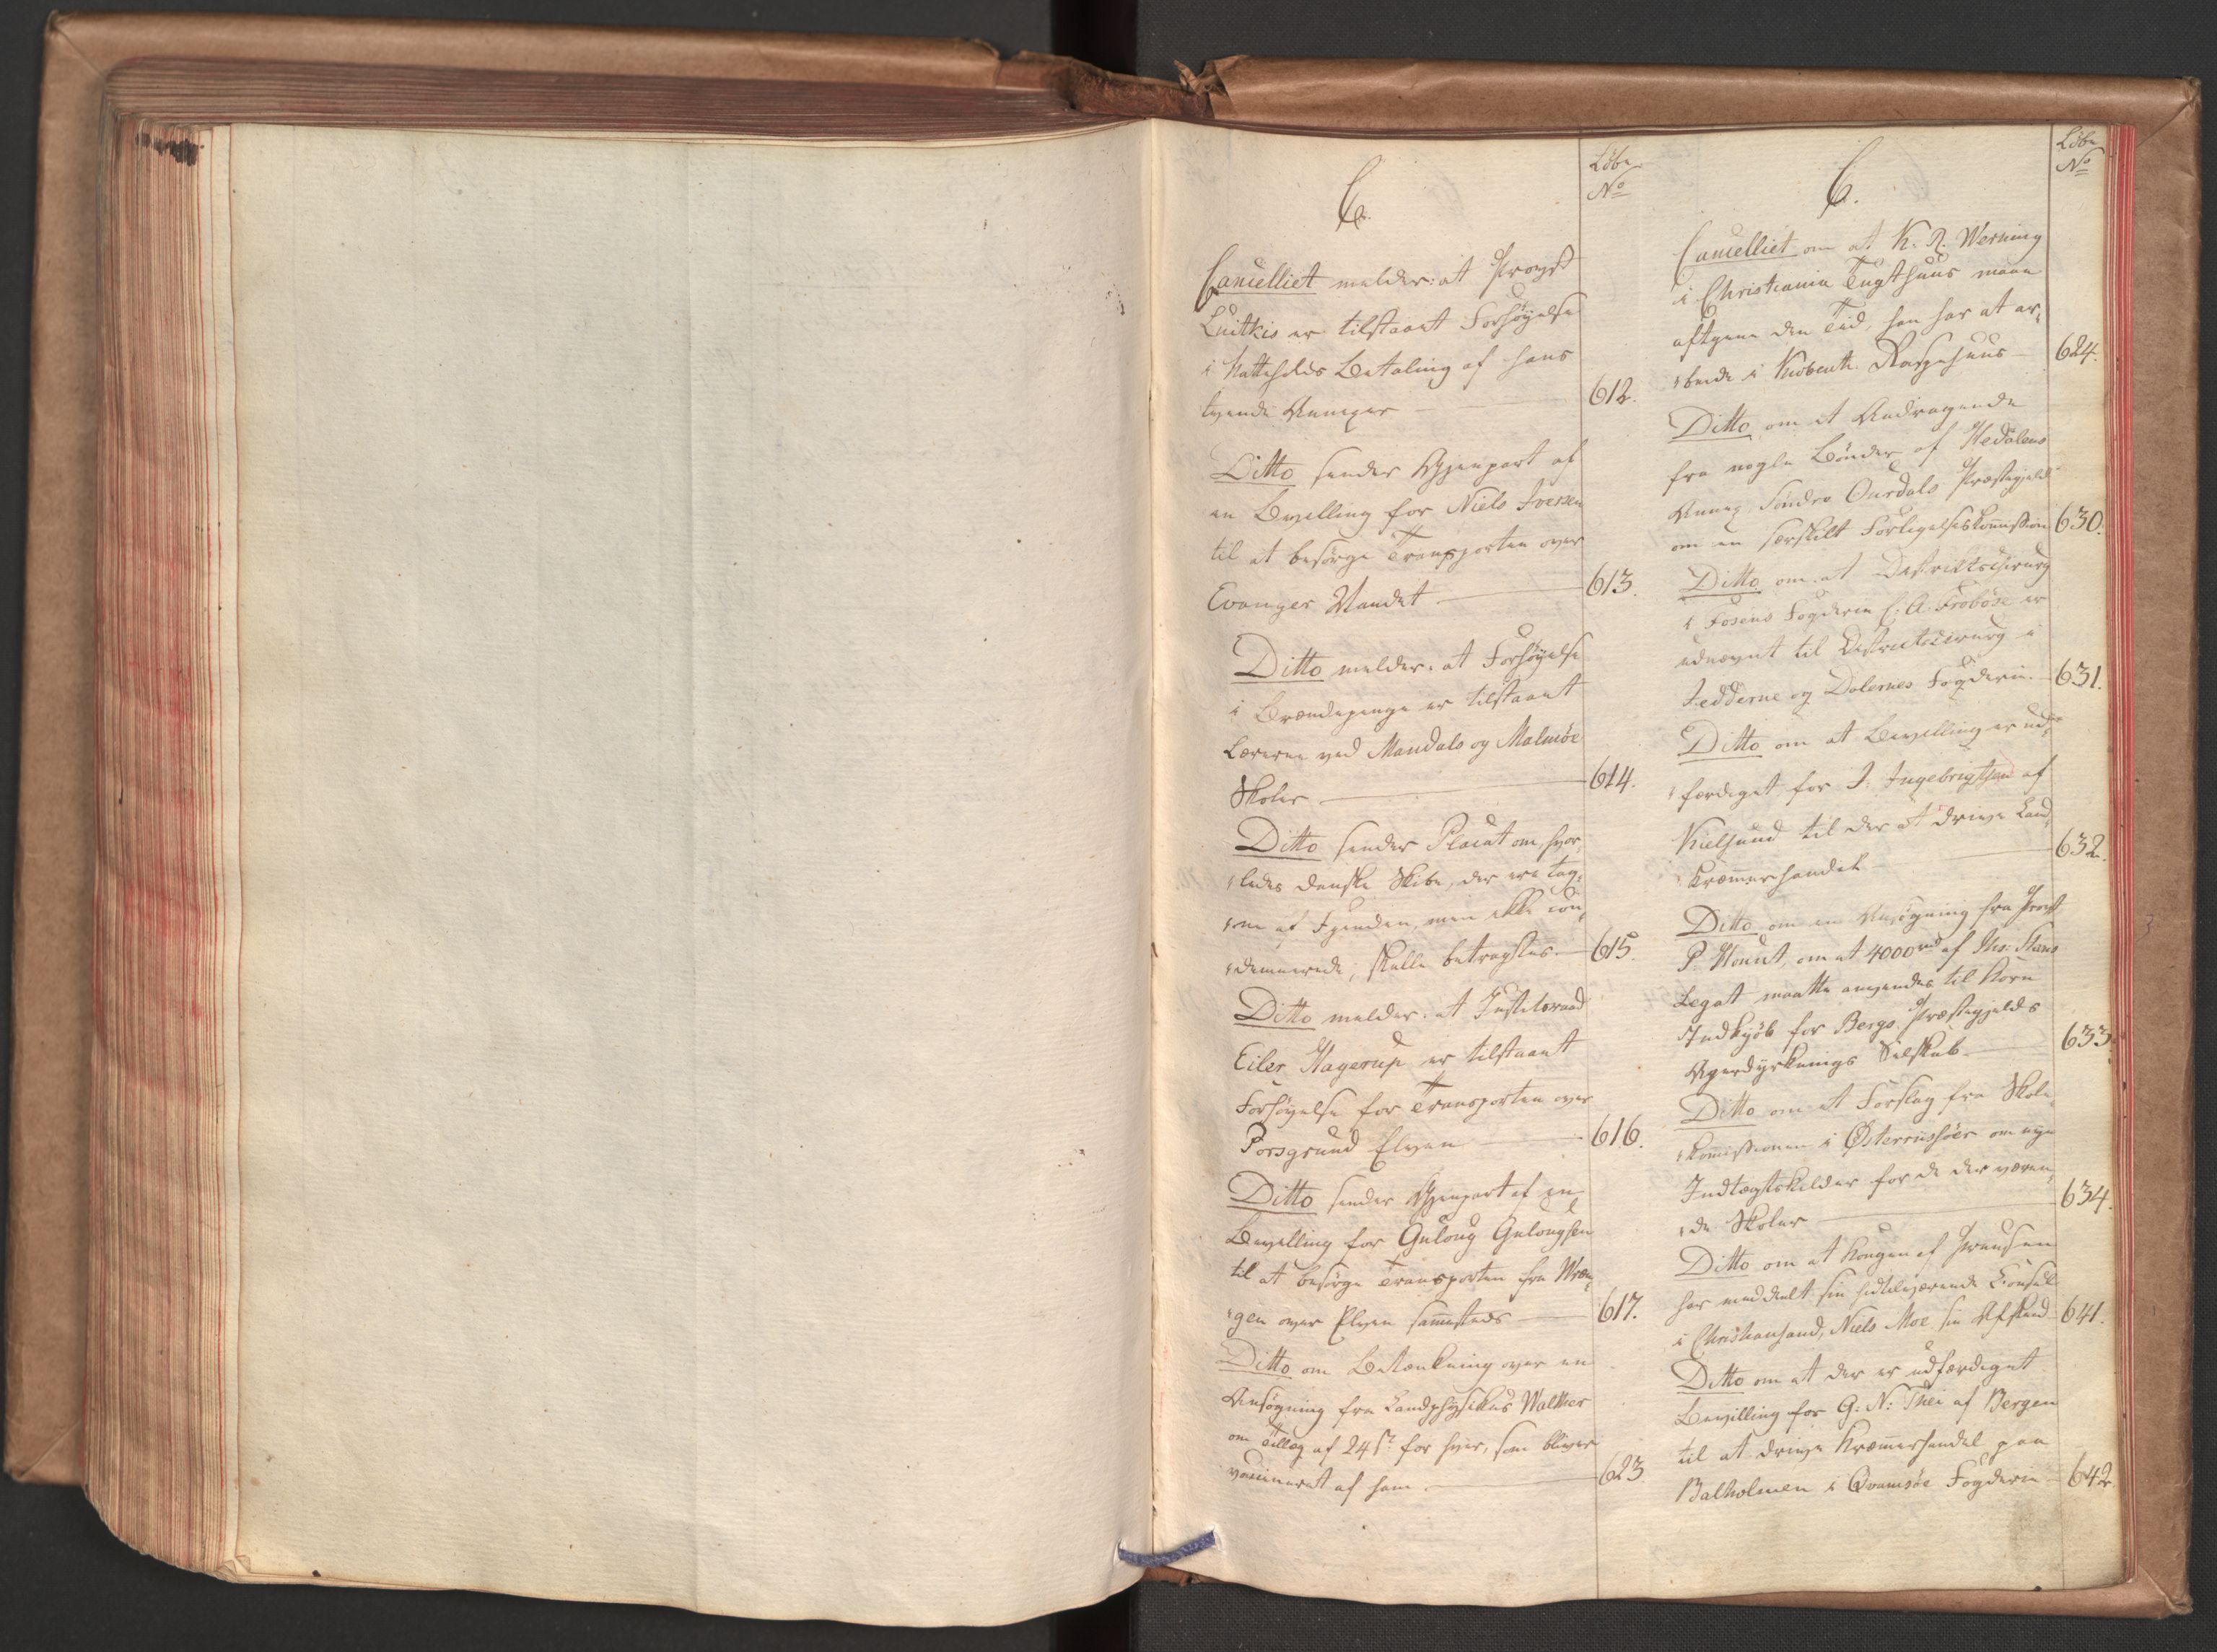 C.
Løbe
No
Cancelliet melder: at Provst
Luitkis er tilstaaet Forhøyelse
i Natteholds Betaling af hans
tvende Annexer
612.
Ditto sender Gjenpart af
en Bevilling for Niels Iversen
til at besørge Transporten over
Evanger Vandet
613.
Ditto melder: at Forhøyelse
i Brændepenge er tilstaaet
Lærerne ved Mandals og Malmøe
Skoler
614.
Ditto sender Placat om, hvor,
ledes danske Skibe, der ere tag,
ne af Fjenden, men ikke con,
demnerede, skulle betragtes.
615.
Ditto melder: at Justitsraad
Eiler Hagerup er tilstaaet
Forhøyelse for Transporten over
Porsgrund Elven
616.
Ditto sender Gjenpart af en
Bevilling for Guloug Gulougsen
til at besørge Transporten fra Vræn,
gen over Elven sammesteds
617.
Ditto om Betænkning over en
Ansøgning fra Landphysikus Walther
om Tillæg af 24 s for hver, som bliver
vaccineret af ham
623
C.
Løbe
No
Cancelliet om at K. R. Werning
i Christiania Tugthuus maae
aftjene den Tid, han har at ar,
beide i Kiøbenh. Raspehuus
624.
Ditto om et Andragende
fra nogle Bønder af Hedalens
Annex Søndre Ourdals Præstegjeld
om en særskilt Forligelseskommission
630.
Ditto om at Distriktschirurg
i Fosens Fogderie C. A. Frobøse er
udnævnt til Districtscirurg i
Jedderne og Dalernes Fogderie.
631.
Ditto om at Bevilling er ud,
færdiget for J. Ingebrigtsen af
Kielsund til der at drive Land,
kræmmerhandel
632.
Ditto om en Ansøgning fra Provst
P. Hount, om at 4000 rd af Ths: Stans
Legat maatte anvendes til Korn
Indkjøb for Bergs Præstegjelds
Agerdyrknings Selskab
633.
Ditto om et Forslag fra Skole,
kommissionen i Østerriisøer om nye
Indtægtskilder for de der væren,
de Skoler
634.
Ditto om at Kongen af Preusen
har meddeelt sin hidtilværende Consul
i Christiansand, Niels Moe sin Afsked
641.
Ditto om at der er udfærdiget
Bevilling for G. N: Thei af Bergen
til at drive Kræmmerhandel paa
Balholmen i Qvamsøe Fogderie
642